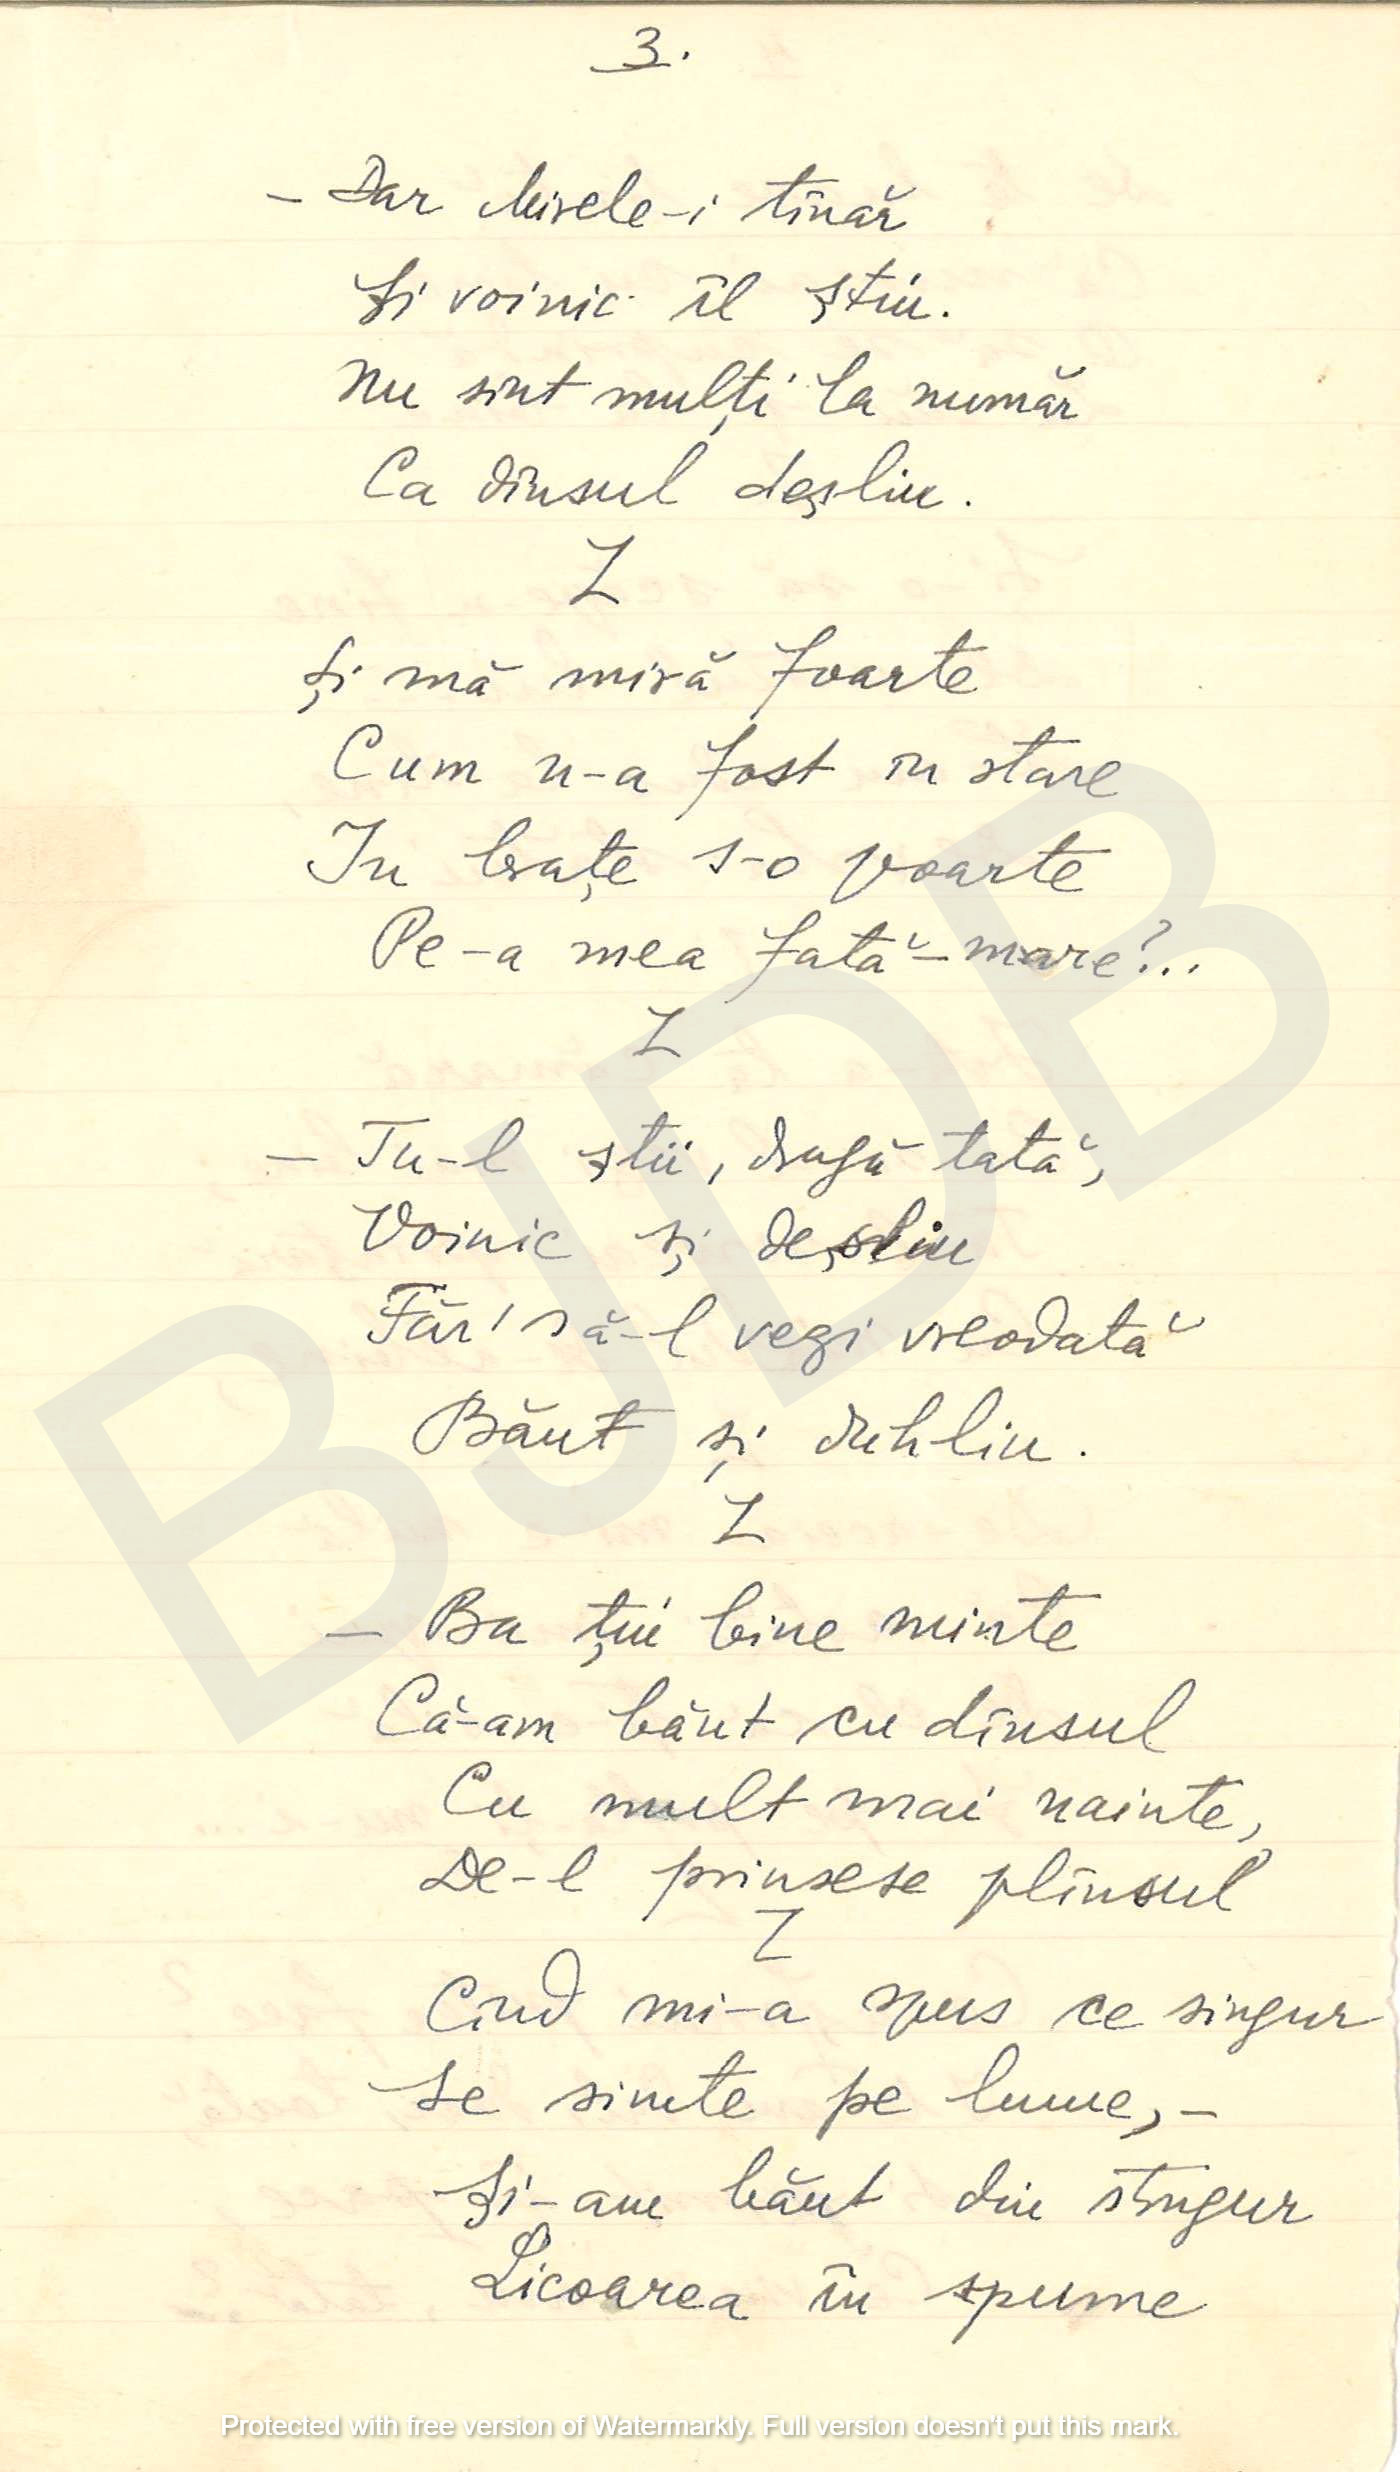 3.
– Dar Mirele-i tînăr
Și voinic îl știu.
Nu sînt mulți la număr
Ca dînsul deșliu.
Z
Și mă miră foarte
Cum n-a fost în stare
In brațe s-o poarte
Pe-a mea fată-mare?..
Z
– Tu-l știi, dragă tată,
Voinic și deșliu
Făr' să-l vezi vreodată
Băut și duhliu.
Z
– Ba țiu bine minte
Că-am băut cu dînsul
Cu mult mai nainte,
De-l prinsese plînsul
Z
Cînd mi-a spus ce singur
Se simte pe lume, –
Și-am băut din strugur
Licoarea în spume
BJDB
Protected with free version of Watermarkly. Full version doesn't put this mark.